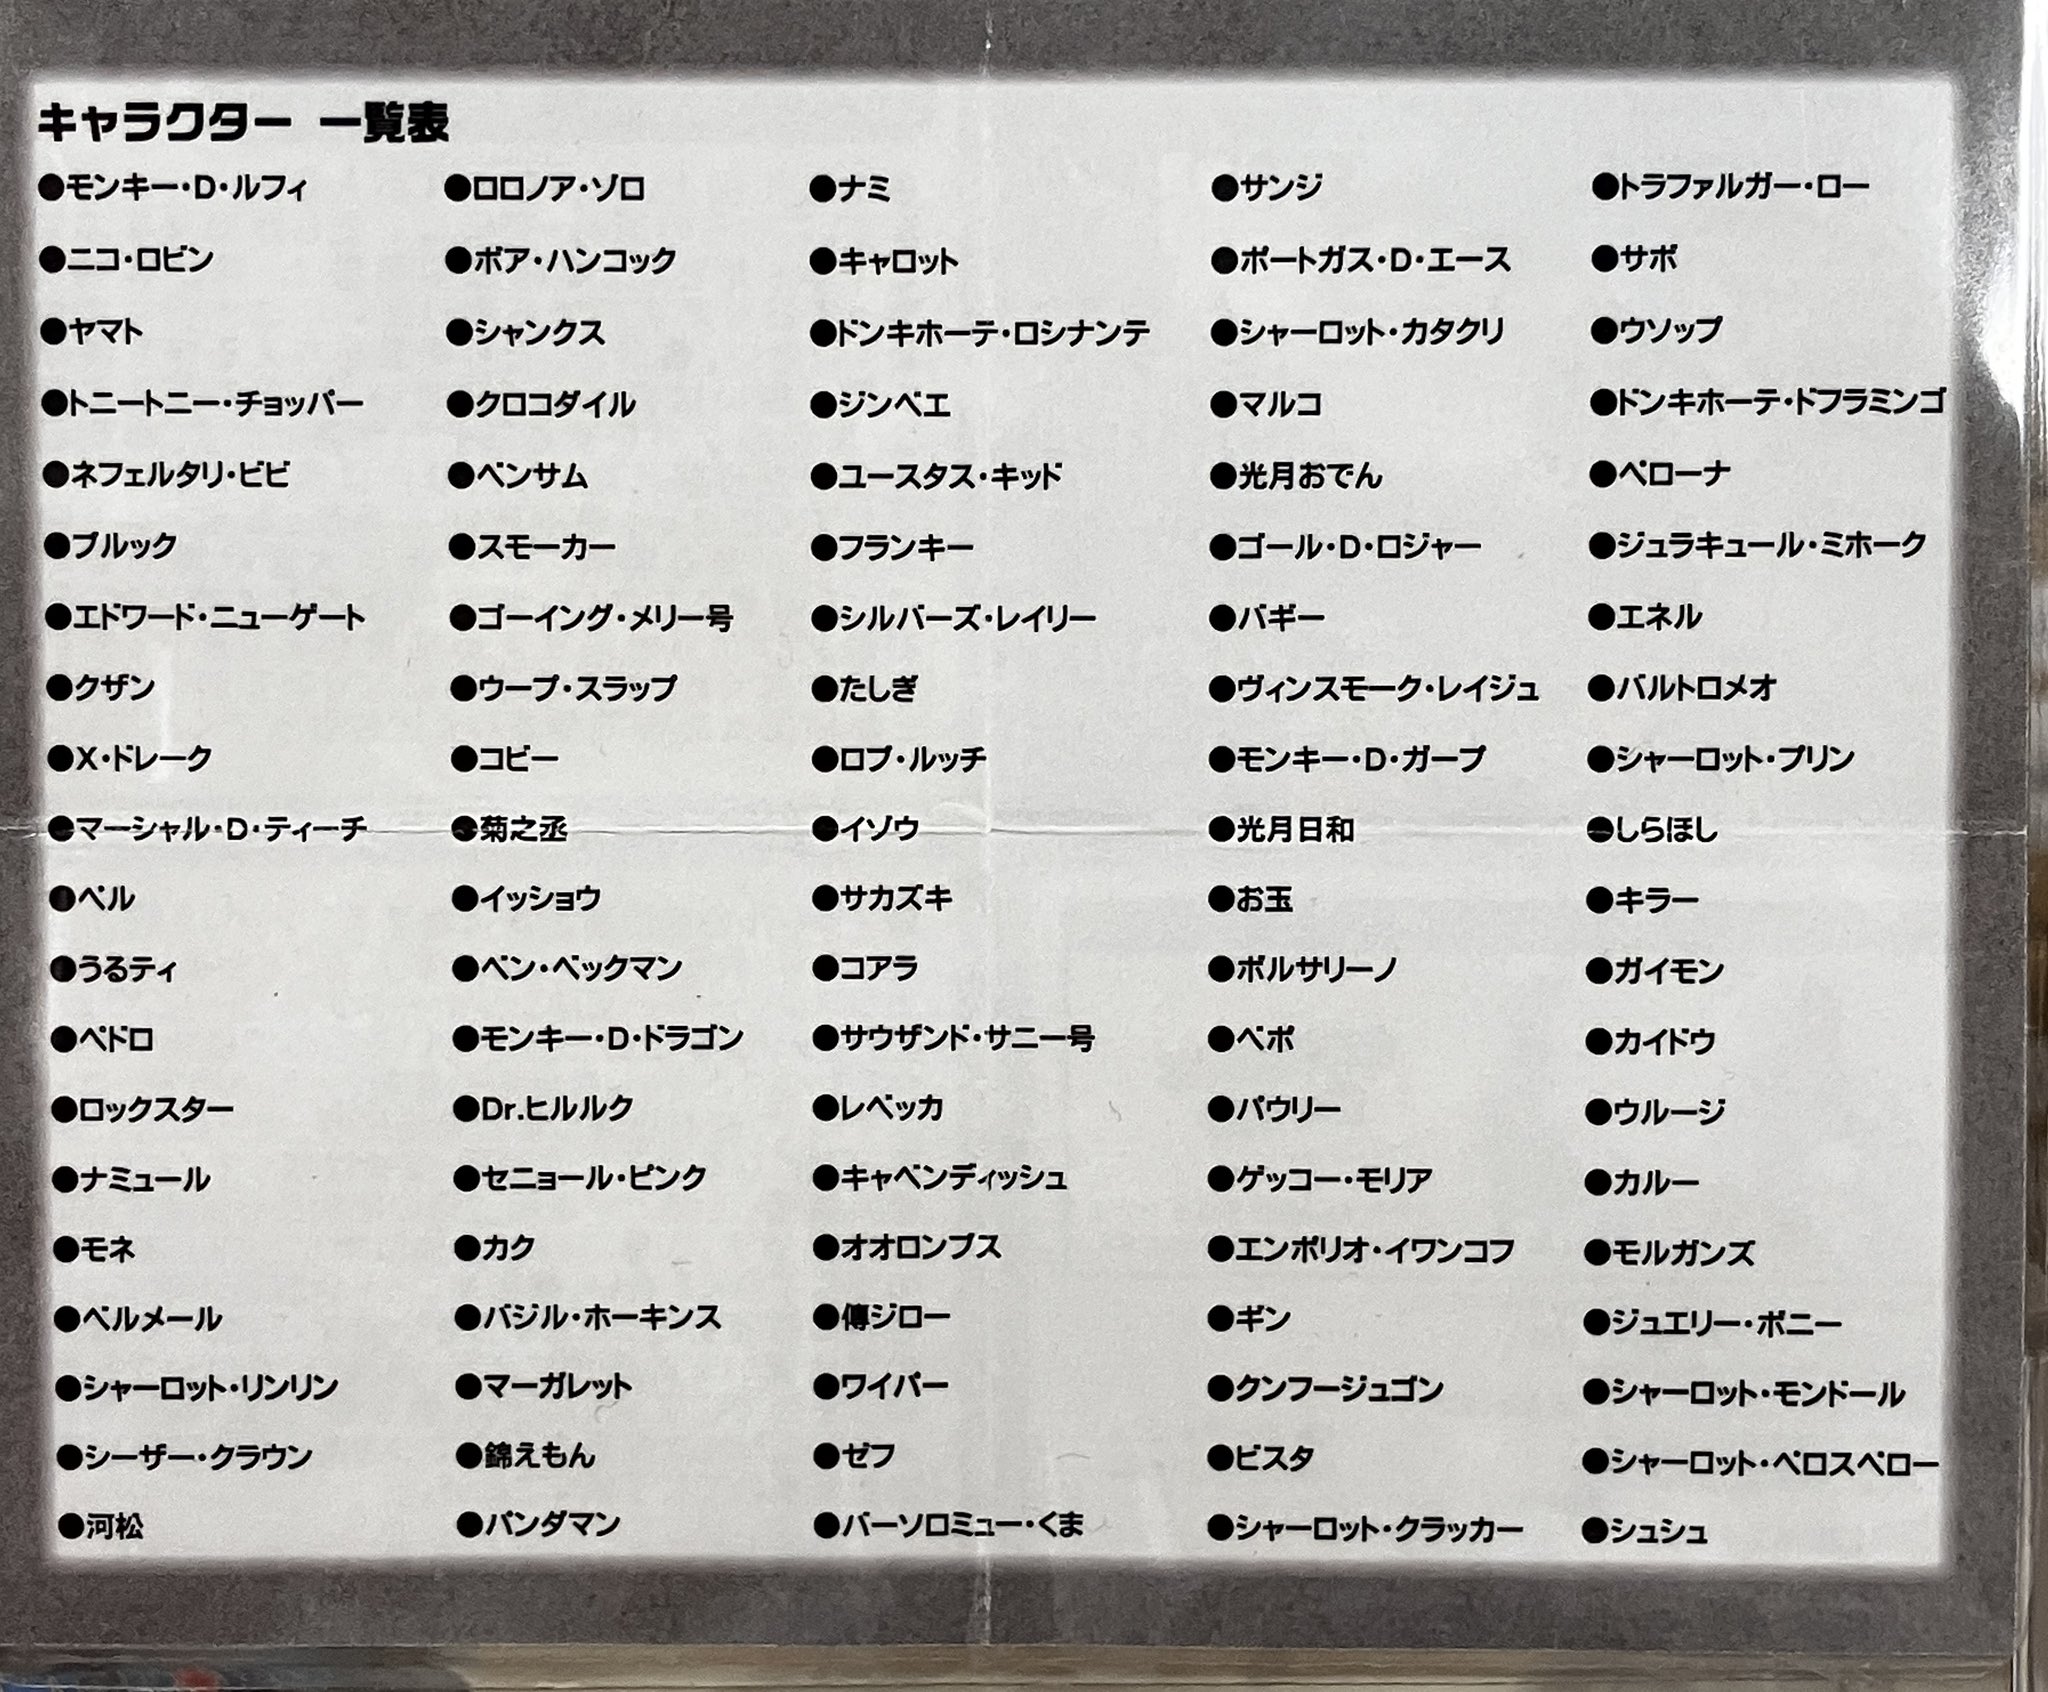 キャラクター 一覧表
●モンキー・D・ルフィ ●ロロノア・ゾロ ●ナミ ●サンジ ●トラファルガー・ロー
●ニコ・ロビン ●ボア・ハンコック ●キャロット ●ポートガス・D・エース ●サボ
●ヤマト ●シャンクス ●ドンキホーテ・ロシナンテ ●シャーロット・カタクリ ●ウソップ
●トニートニー・チョッパー ●クロコダイル ●ジンベエ ●マルコ ●ドンキホーテ・ドフラミンゴ
●ネフェルタリ・ビビ ●ベンサム ●ユースタス・キッド ●光月おでん ●ペローナ
●ブルック ●スモーカー ●フランキー ●ゴール・D・ロジャー ●ジュラキュール・ミホーク
●エドワード・ニューゲート ●ゴーイング・メリー号 ●シルバーズ・レイリー ●バギー ●エネル
●クザン ●ウープ・スラップ ●たしぎ ●ヴィンスモーク・レイジュ ●バルトロメオ
●X・ドレーク ●コビー ●ロブ・ルッチ ●モンキー・D・ガープ ●シャーロット・プリン
●マーシャル・D・ティーチ ●菊之丞 ●イゾウ ●光月日和 ●しらほし
●ペル ●イッショウ ●サカズキ ●お玉 ●キラー
●うるティ ●ベン・ベックマン ●コアラ ●ボルサリーノ ●ガイモン
●ペドロ ●モンキー・D・ドラゴン ●サウザンド・サニー号 ●ベポ ●カイドウ
●ロックスター ●Dr.ヒルルク ●レベッカ ●パウリー ●ウルージ
●ナミュール ●セニョール・ピンク ●キャベンディッシュ ●ゲッコー・モリア ●カルー
●モネ ●カク ●オオロンブス ●エンポリオ・イワンコフ ●モルガンズ
●ベルメール ●バジル・ホーキンス ●傳ジロー ●ギン ●ジュエリー・ボニー
●シャーロット・リンリン ●マーガレット ●ワイパー ●クンフージュゴン ●シャーロット・モンドール
●シーザー・クラウン ●錦えもん ●ゼフ ●ビスタ ●シャーロット・ペロスペロー
●河松 ●パンダマン ●バーソロミュー・くま ●シャーロット・クラッカー ●シュシュ